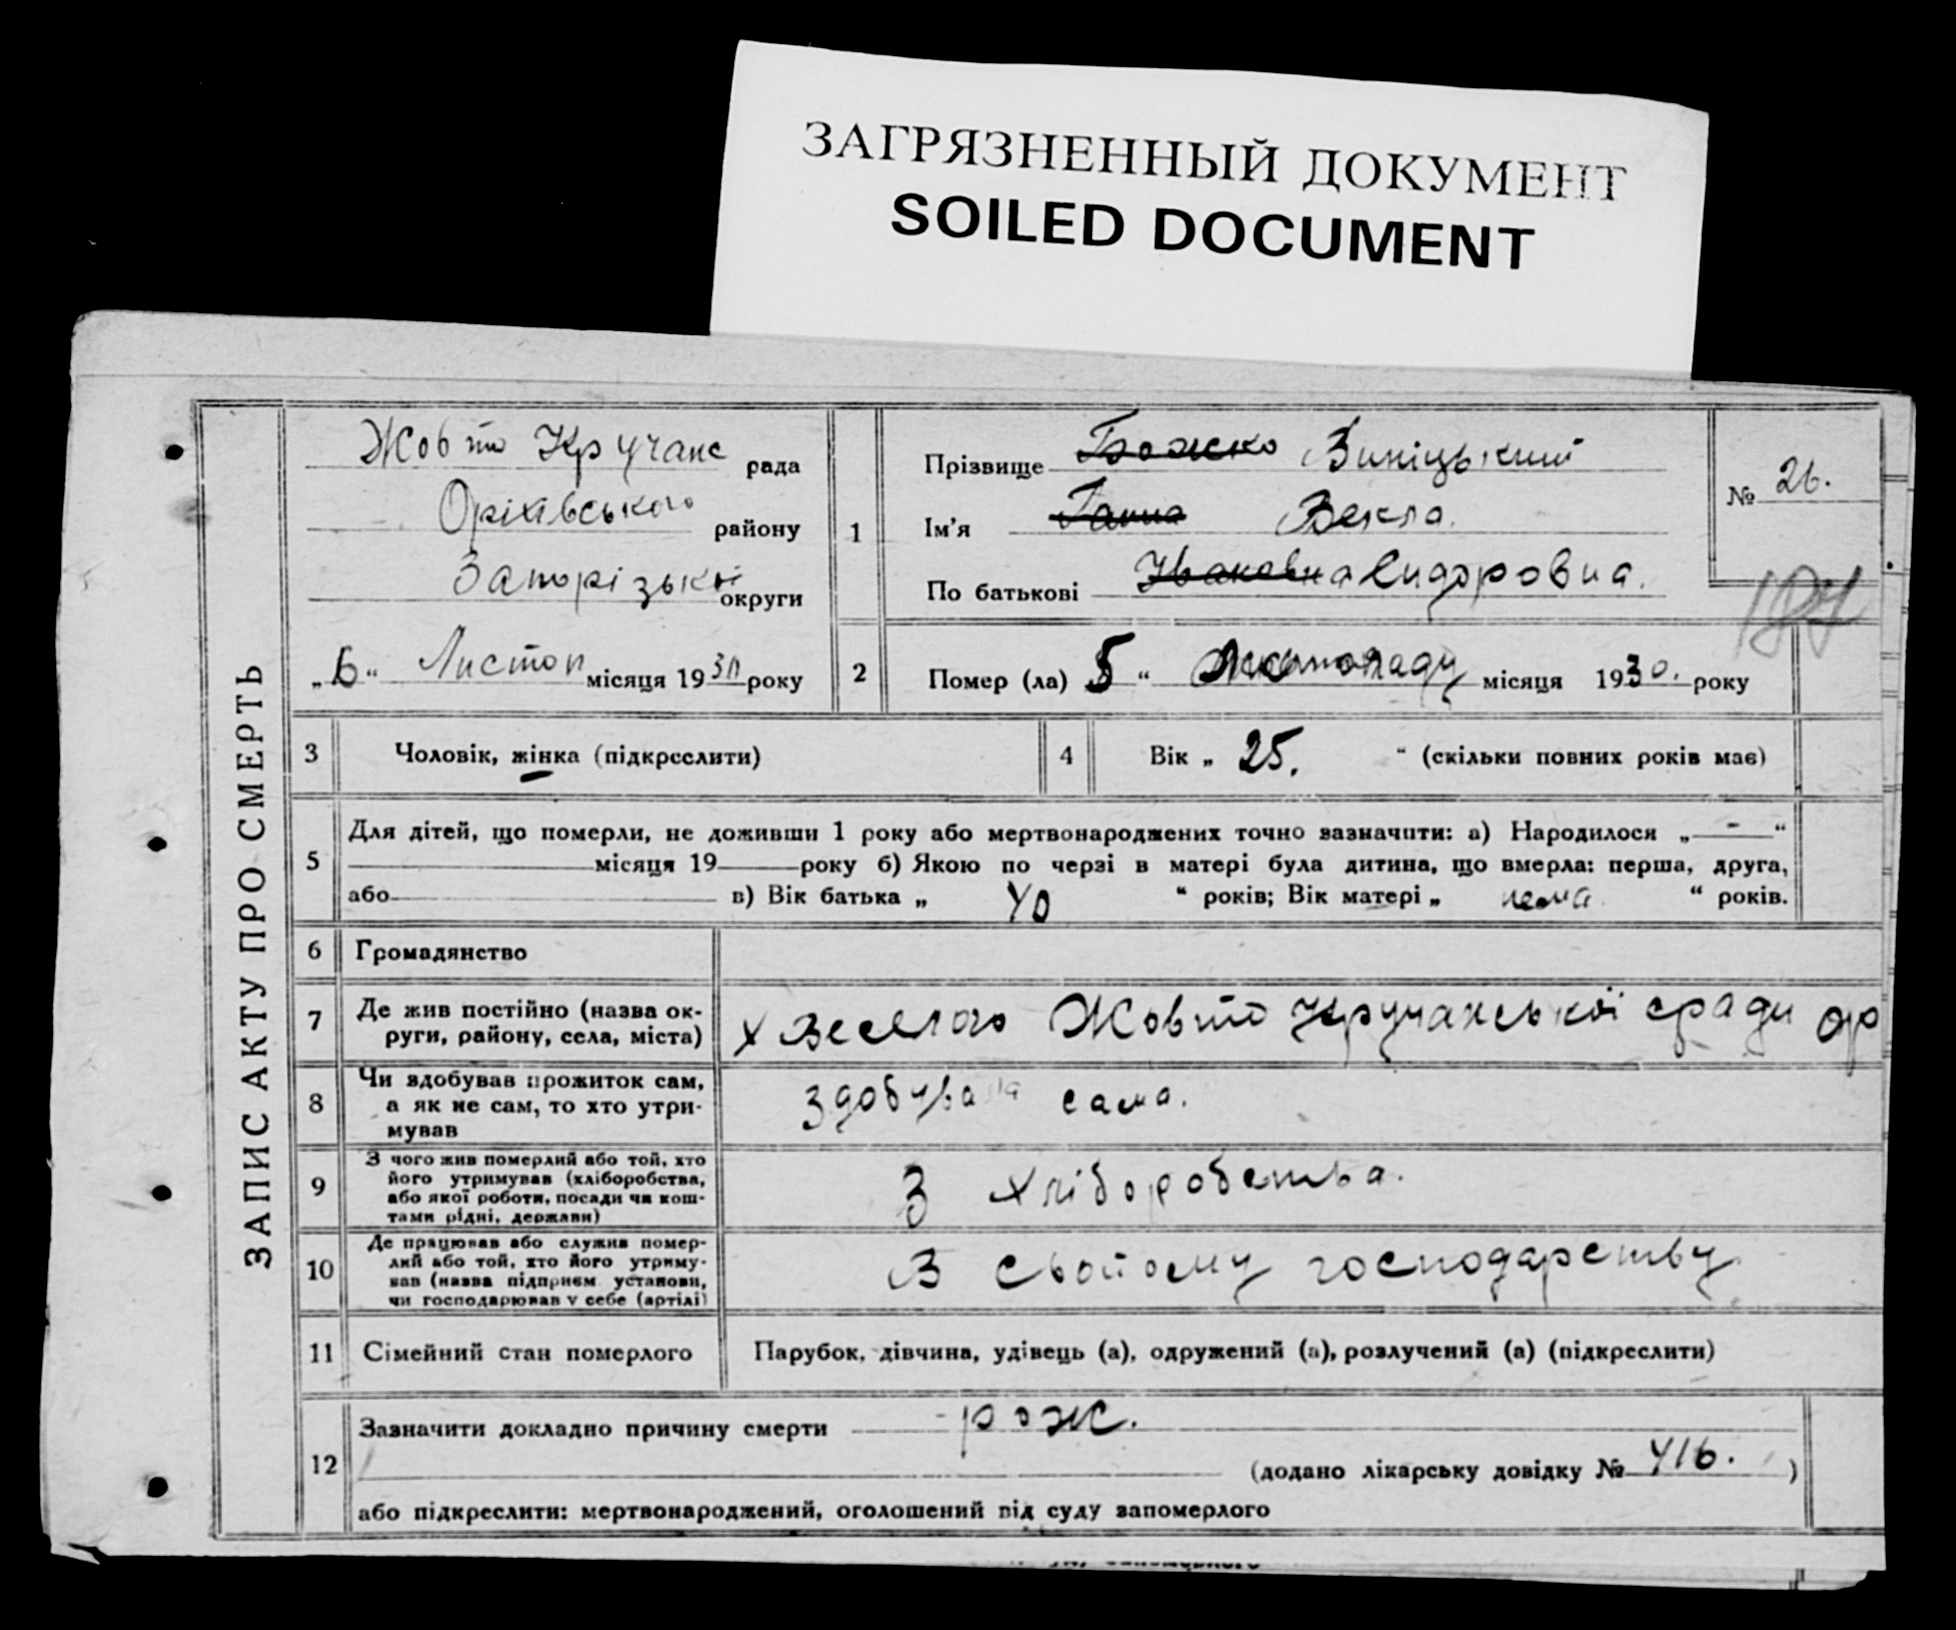 ЗАГРЯЗНЕННЫЙ ДОКУМЕНТ
SOILED DOCUMENT
ЗАПИС АКТУ ПРО СМЕРТЬ
Жовто Кручанс рада
Оріхівського району
Запорізької округи
„6“ Листоп місяця 1930 року
1
Прізвище Божко Виніцький
Ім'я Ганна Векла.
По батькові Івановна Сидоровна.
№ 26.
187
2
Помер (ла) 5 “ Листопаду місяця 1930. року
3 Чоловік, жінка (підкреслити)
4 Вік „ 25. “ (скільки повних років має)
5
Для дітей, що померли, не доживши 1 року або мертвонароджених точно зазначити: а) Народилося „ - “
місяця 19 року б) Якою по черзі в матері була дитина, що вмерла: перша, друга,
або в) Вік батька „ 40 “ років; Вік матері „ нема “ років.
6 Громадянство
7 Де жив постійно (назва ок-
руги, району, села, міста)
х Веселого Жовто Кручанської сради ор
8 Чи здобував прожиток сам,
а як не сам, то хто утри-
мував
Здобувала сама.
9 З чого жив померлий або той, хто
його утримував (хліборобства,
або якої роботи, посади чи кош-
тами рідні, держави)
З хліборобства.
10 Де працював або служив помер-
лий або той, хто його утриму-
вав (назва підприєм. установи,
чи господарював у себе (артілі)
В свойому господарству
11 Сімейний стан померлого
Парубок, дівчина, удівець (а), одружений (а), розлучений (а) (підкреслити)
12
Зазначити докладно причину смерти - рож.
(додано лікарську довідку № 416. )
або підкреслити: мертвонароджений, оголошений від суду запомерлого